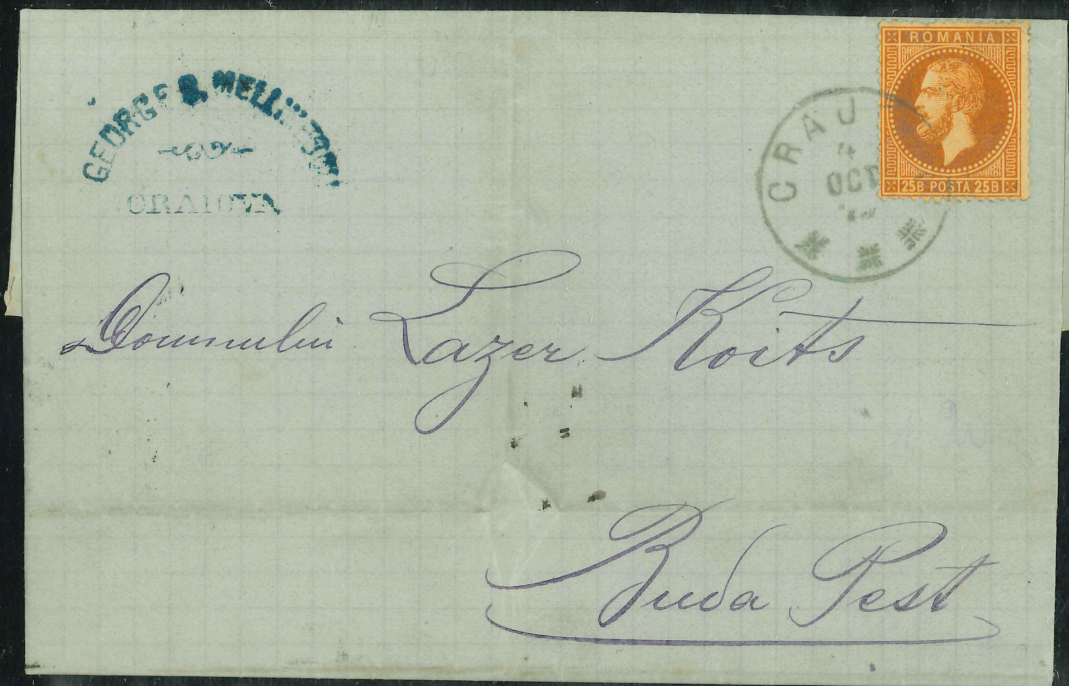 GEORGE B.
CRAIOVA
ROMANIA
25B POSTA 25B
4
OCT
Domnului Lazer Koits
Buda Pest